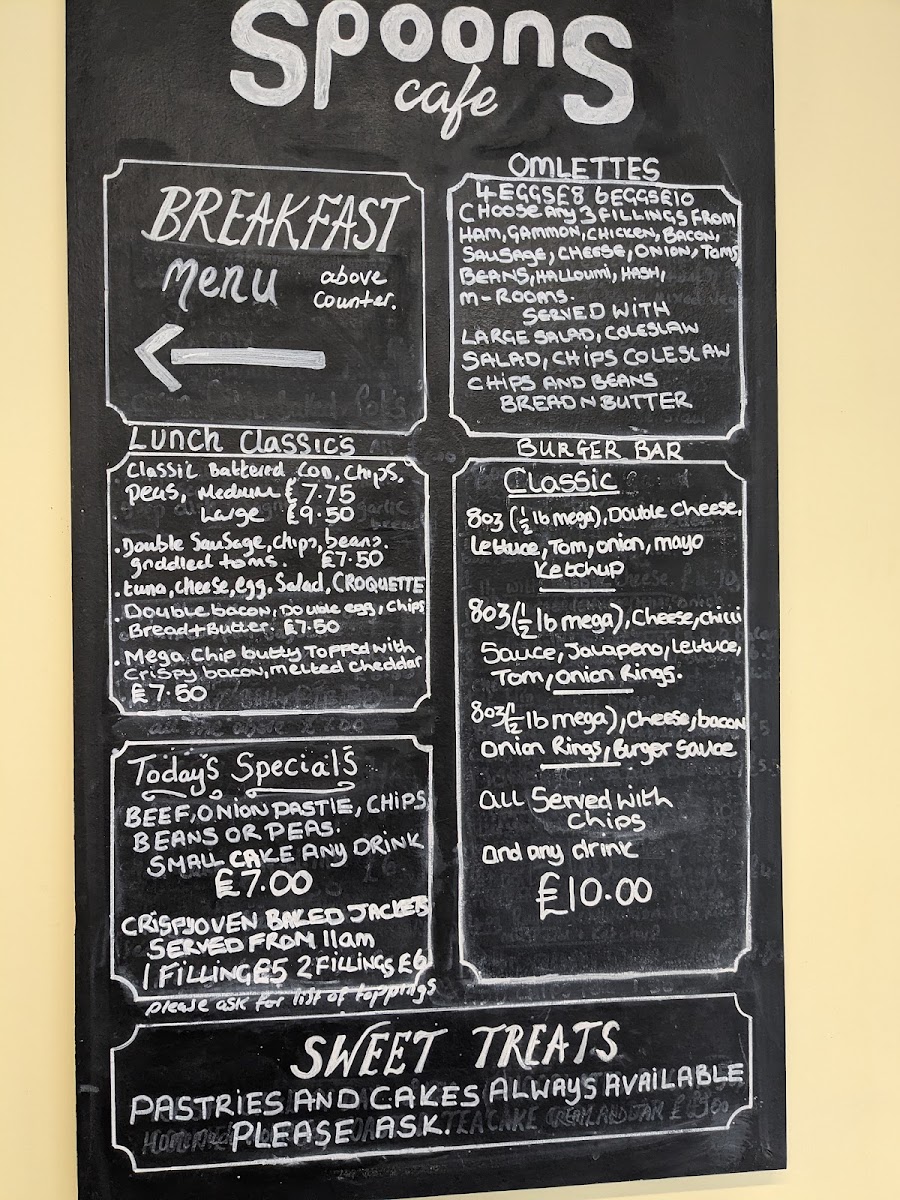 Spoons
cafe
BREAKFAST
Menu above
counter.
OMLETTES
4 EGGS £8 6 EGGS £10
CHOOSE ANY 3 FILLINGS FROM
HAM, GAMMON, CHICKEN, BACON,
SAUSAGE, CHEESE, ONION, TOMS
BEANS, HALLOUMI, HASH,
M-ROOMS.
SERVED WITH
LARGE SALAD, COLESLAW
SALAD, CHIPS COLESLAW
CHIPS AND BEANS
BREAD N BUTTER
Lunch Classics
Classic Battered Cod, Chips,
peas, Medium £7.75
Large £9.50
. Double Sausage, chips, beans.
griddled toms. £7.50
. tuna, cheese, egg, Salad, CROQUETTE
. Double bacon, Double egg, Chips
Bread + Butter. £7.50
. Mega Chip butty Topped with
Crispy bacon, melted cheddar
£7.50
Today's Specials
BEEF, ONION PASTIE, CHIPS
BEANS OR PEAS.
SMALL CAKE ANY DRINK
£7.00
CRISPY OVEN BAKED JACKETS
SERVED FROM 11am
1 FILLING £5 2 FILLINGS £6
please ask for list of toppings
BURGER BAR
Classic
8oz (½ lb mega), Double Cheese,
Lettuce, Tom, onion, mayo
Ketchup
8oz (½ lb mega), Cheese, chilli
Sauce, Jalapeno, lettuce,
Tom, onion Rings.
8oz (½ lb mega), Cheese, bacon
onion Rings, Burger Sauce
all Served with
Chips
and any drink
£10.00
SWEET TREATS
PASTRIES AND CAKES ALWAYS AVAILABLE
PLEASE ASK.